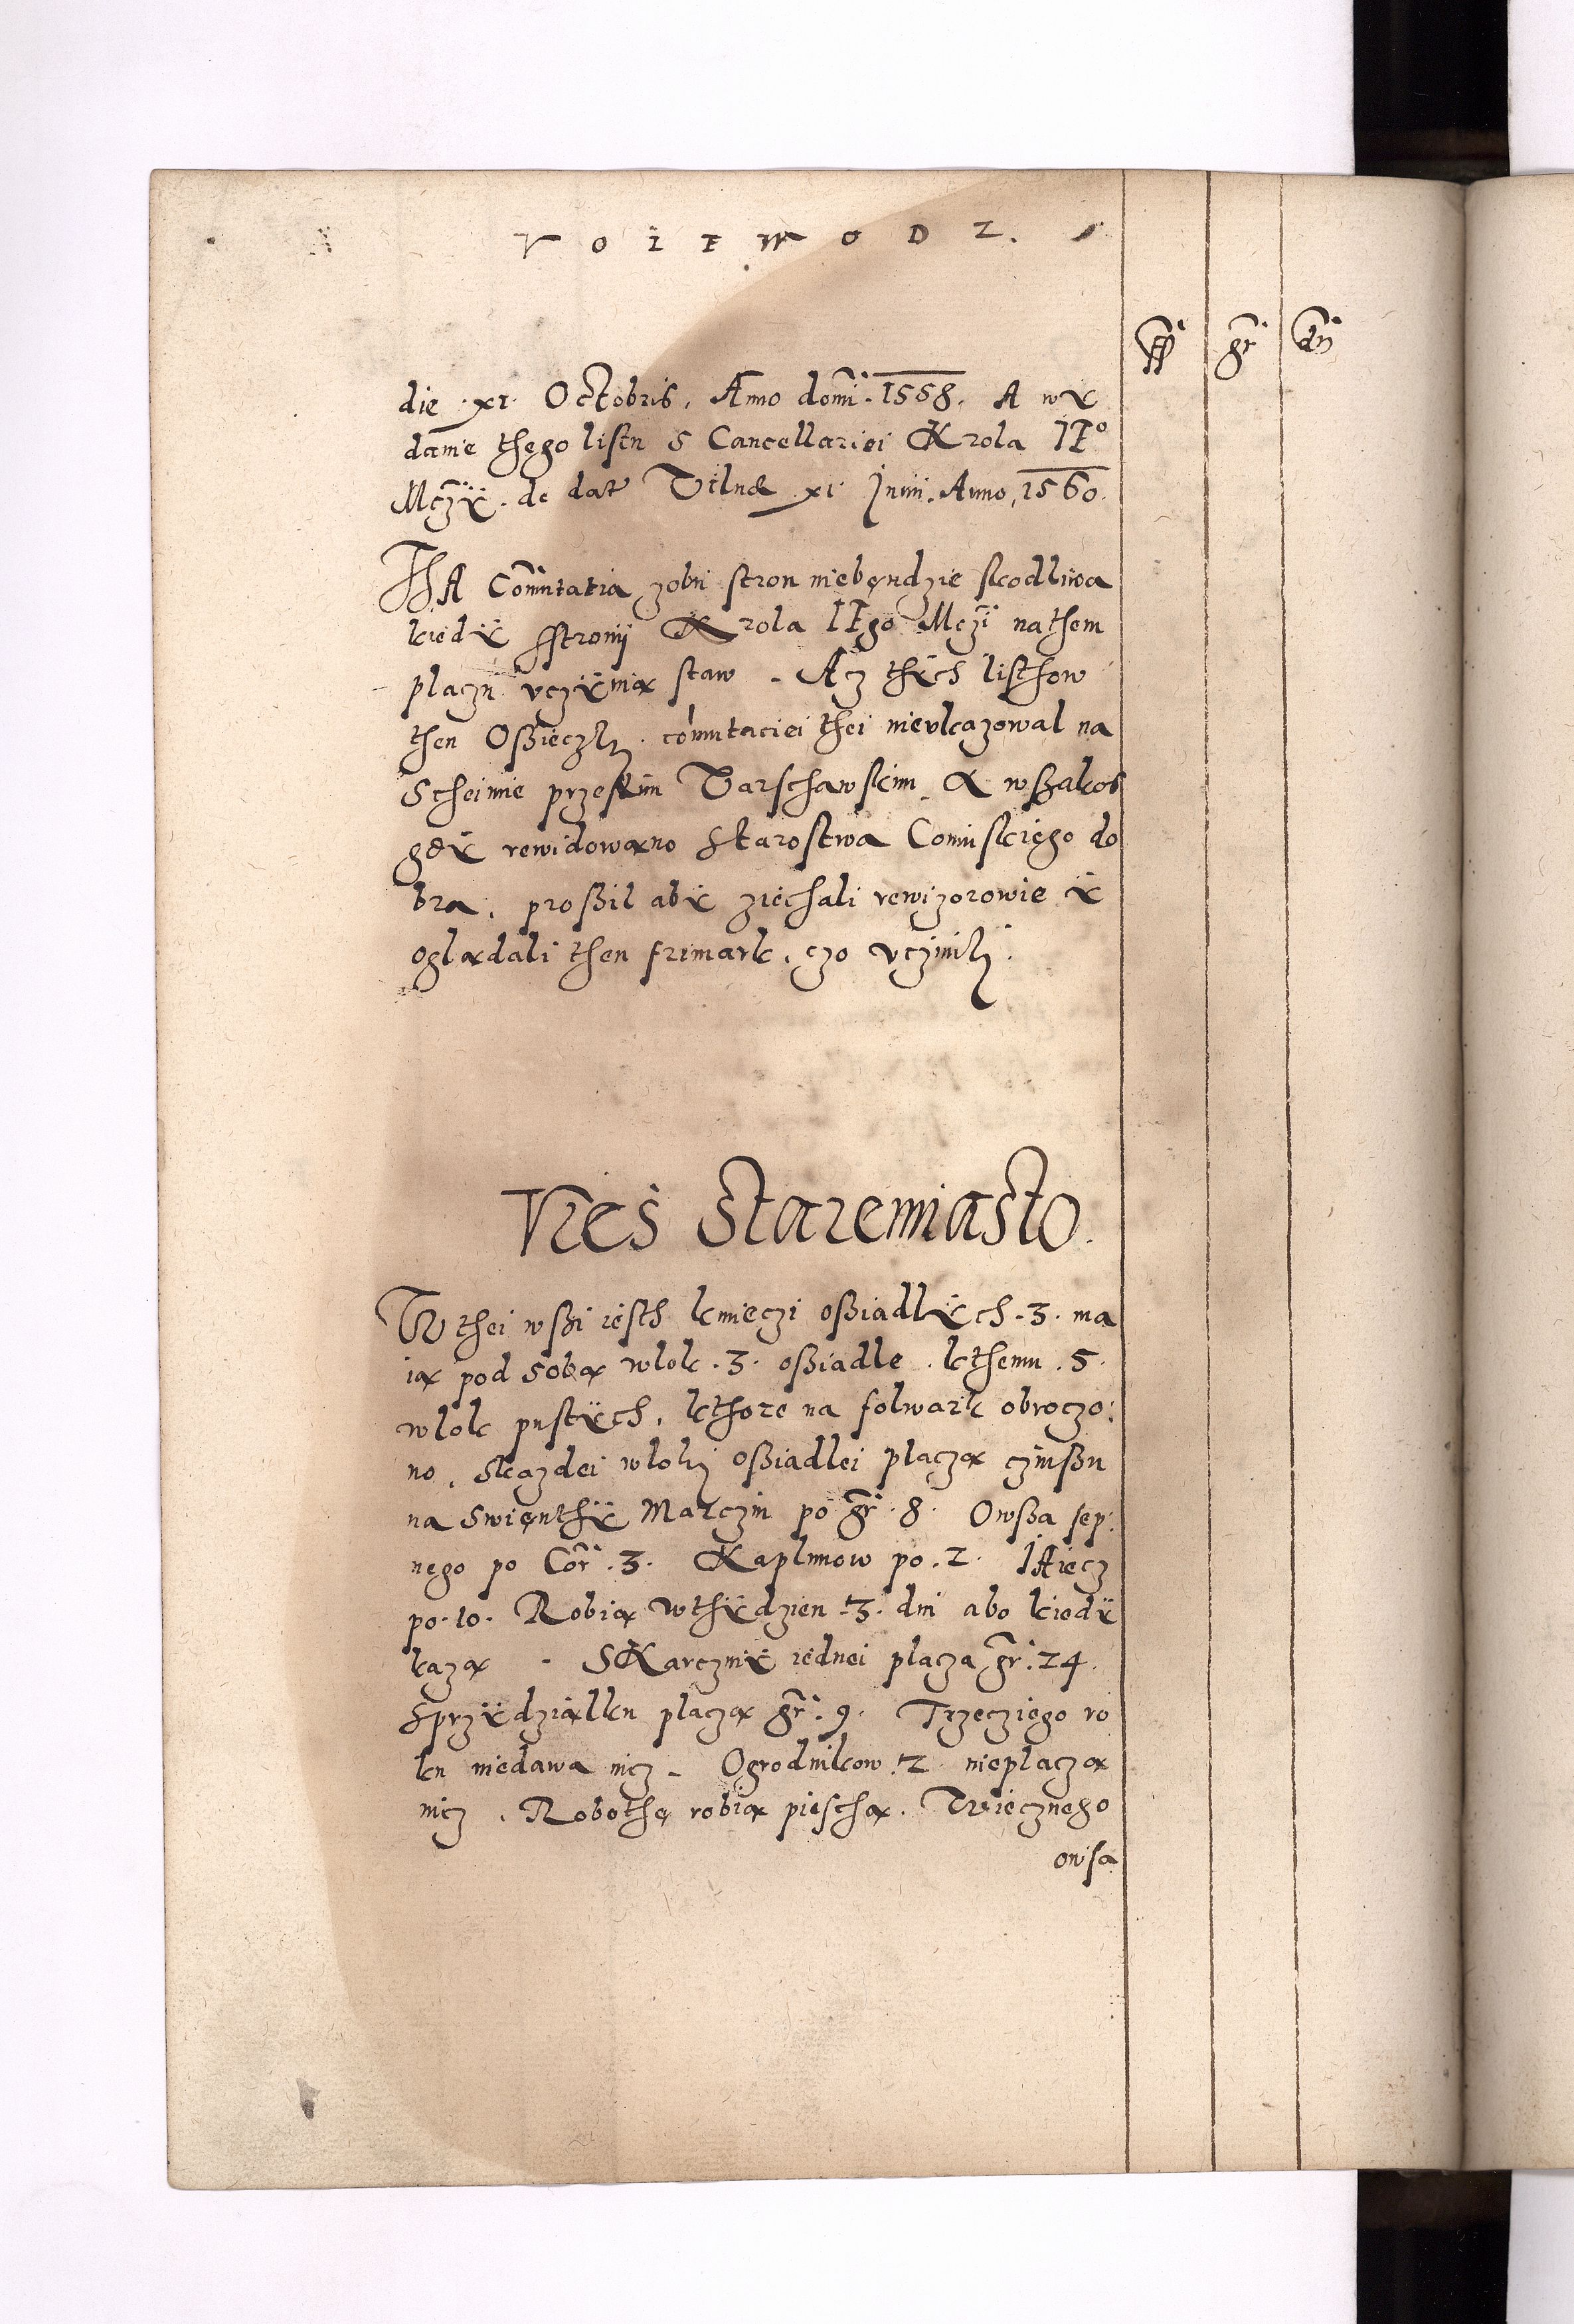 VOIEWODZ.
ff gr dn
die xi Octobris. Anno domi. 1558. A wÿ
danie thego listu s Cancellariei Krola IE°
Mczÿ. de dat Vilnæ xi Junii. Anno, 1560.
THA Comutatia zobu stron niebęndzie scodliwa
kiedÿ sstronÿ Krola IEgo Mczi nathem
placzu vczÿnią staw. Acz thÿch listhow
then Oßieczkÿ comutaciei thei nieukazowal na
Scheimie przeslim Varschawskim. A wßakos
gdÿ rewidowano starostwa Coninskiego do
bra, proßil abÿ ziechali rewizorowie ÿ
oglądali then frimark, czo vczinilÿ.
Vies Staremiasto.
W thei wßi iesth kmieczi oßiadlÿch .3. ma
ią pod sobą wlok .3. oßiadle. kthemu .5.
wlok pustÿch, kthore na folwark obroczo:
no. Skazdei wlokÿ oßiadlei placzą czinßu
na Swięnthÿ Marczin po gr. 8. Owßa sep:
nego po Cor. 3. Kaplunow po .2. IAiecz
po .10. Robią wthÿdzien .3. dni abo kiedÿ
kazą. SKarczmÿ iednei placza gr. 24.
sprzÿdziałku placzą gr. 9. Trzecziego ro
ku niedawa nicz. Ogrodnikow .2. nieplaczą
nicz. Robothę robią pieschą. Wiecznego
owsa